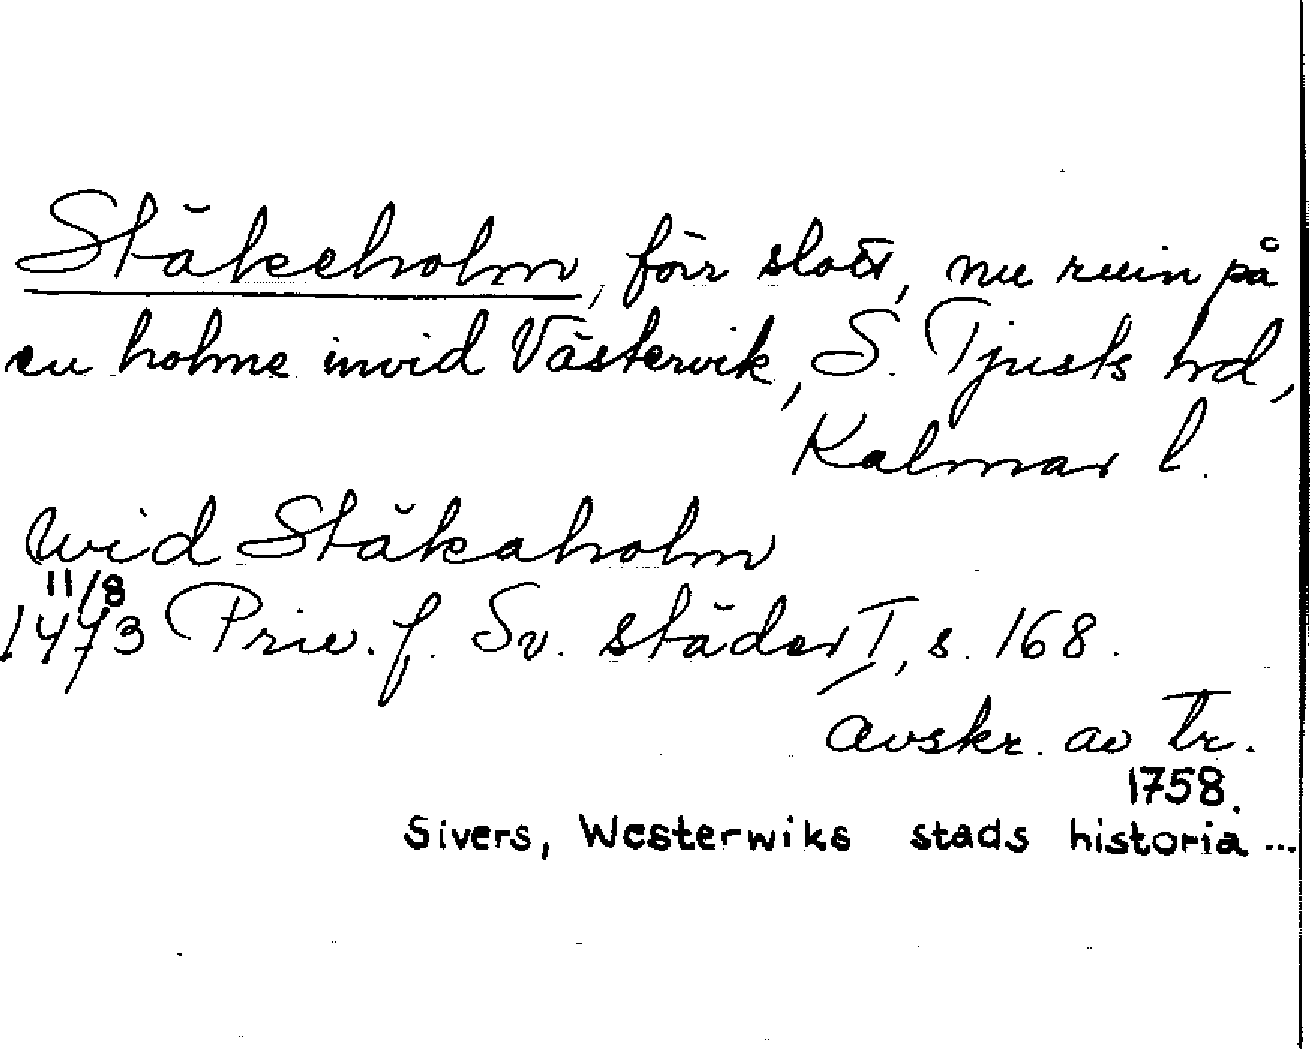 Stäkeholm, förr slott, nu ruin på
en holme invid Västervik, S. Tjusts hd,
Kalmar l.
wid Stäkaholm
11/8
1473 Priv. f. Sv. städer I, s. 168.
Avskr. av Tr.
1758.
Sivers, Westerwiks stads historia ...